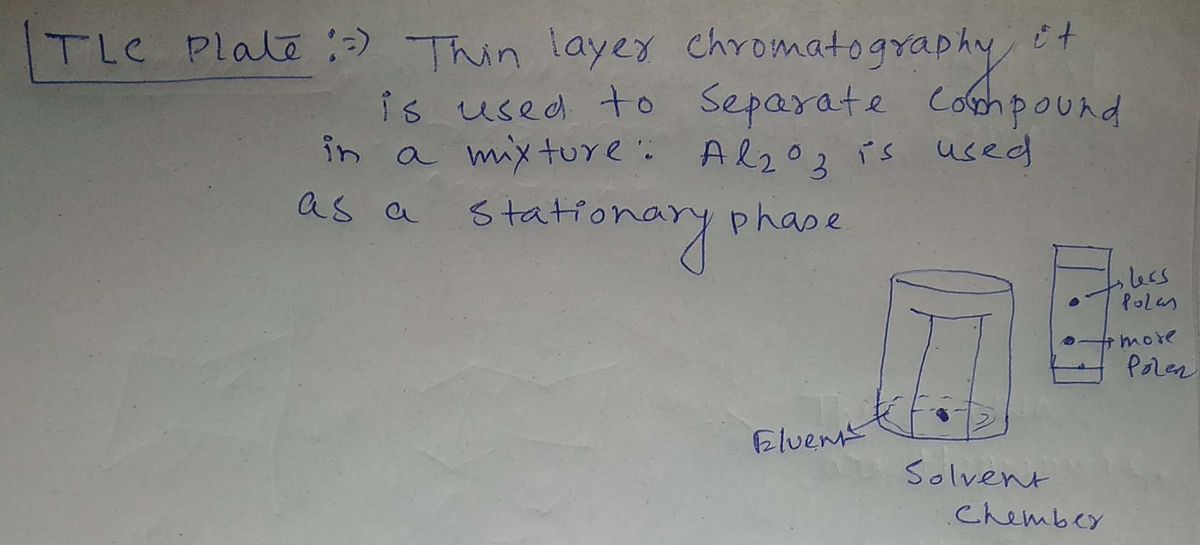 TLC Plate :=) Thin layer chromatography it
is used to separate compound
in a mixture : Al2O3 is used
as a stationary phase
less
Polar
more
Polar
Eluent
Solvent
Chember